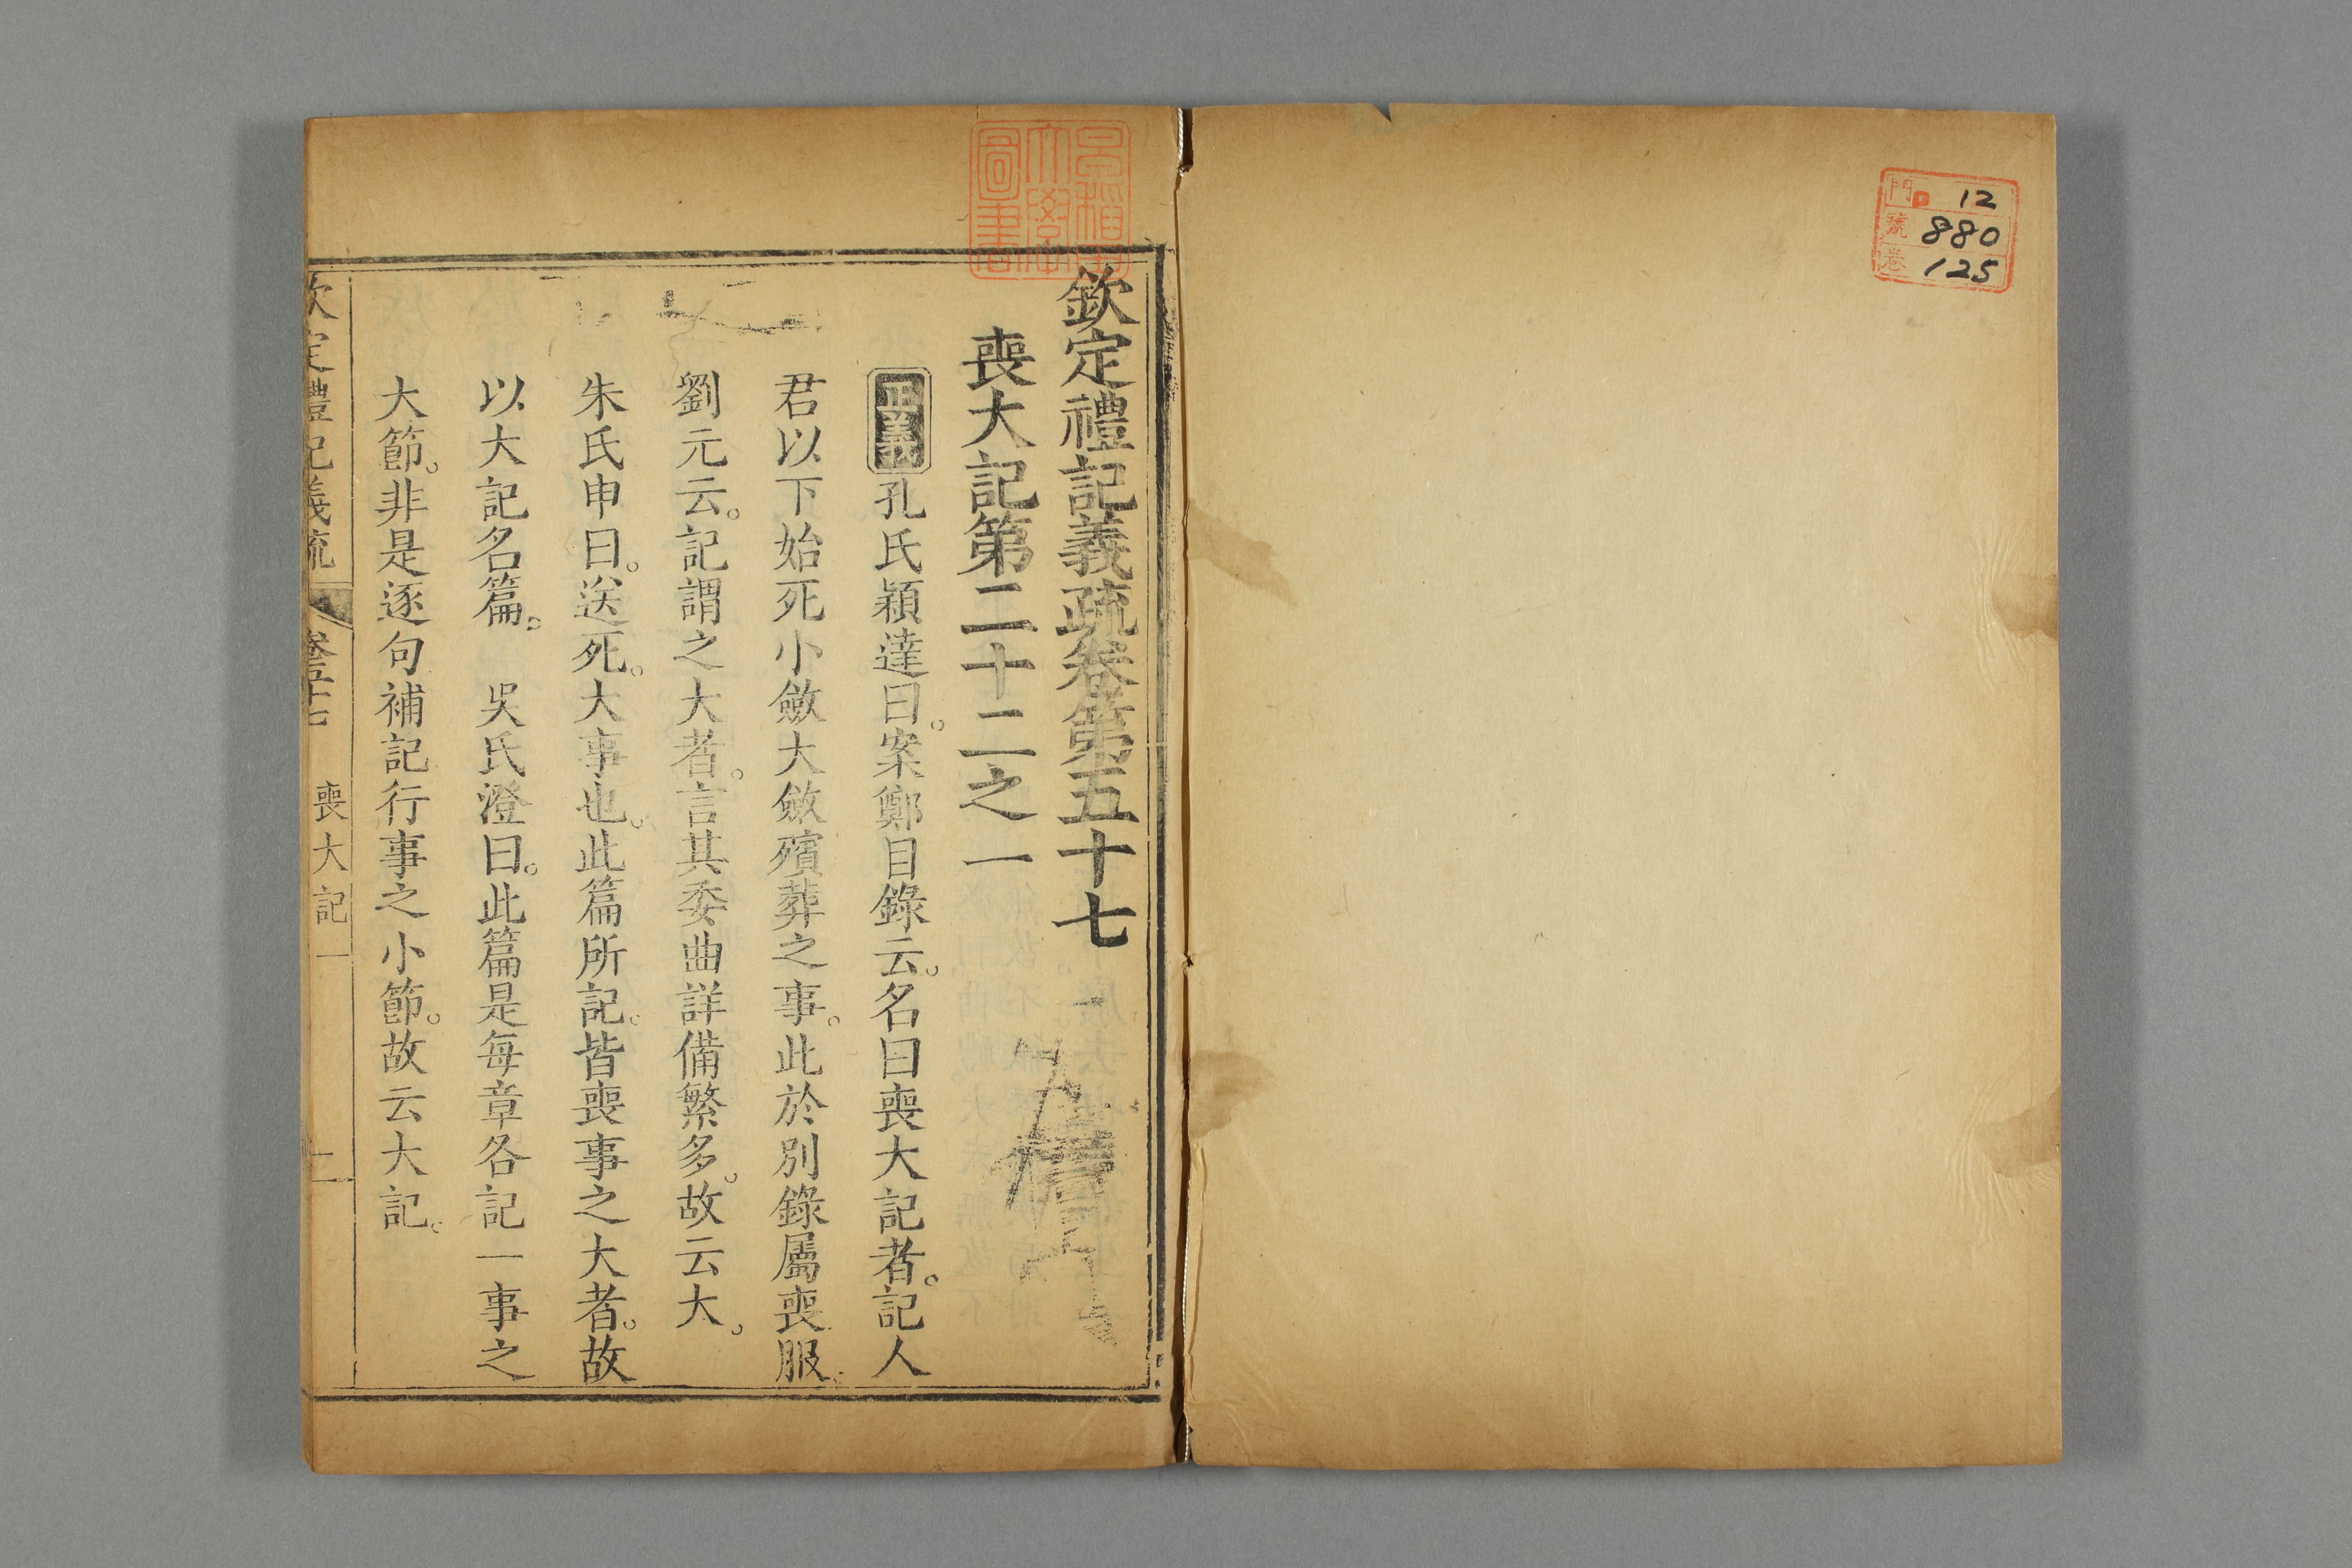 門 12
號 880
卷 125
早稻田
大學
圖書
欽定禮記義疏卷第五十七
喪大記第二十二之一
正義 孔氏穎達曰。案鄭目錄云。名曰喪大記者。記人
君以下始死小斂大斂殯葬之事。此於別錄屬喪服。
劉元云。記謂之大者。言其委曲詳備繁多。故云大。
朱氏申曰。送死。大事也。此篇所記。皆喪事之大者。故
以大記名篇。 吳氏澄曰。此篇是每章各記一事之
大節。非是逐句補記行事之小節。故云大記。
欽定禮記義疏 卷五十七 喪大記一 二